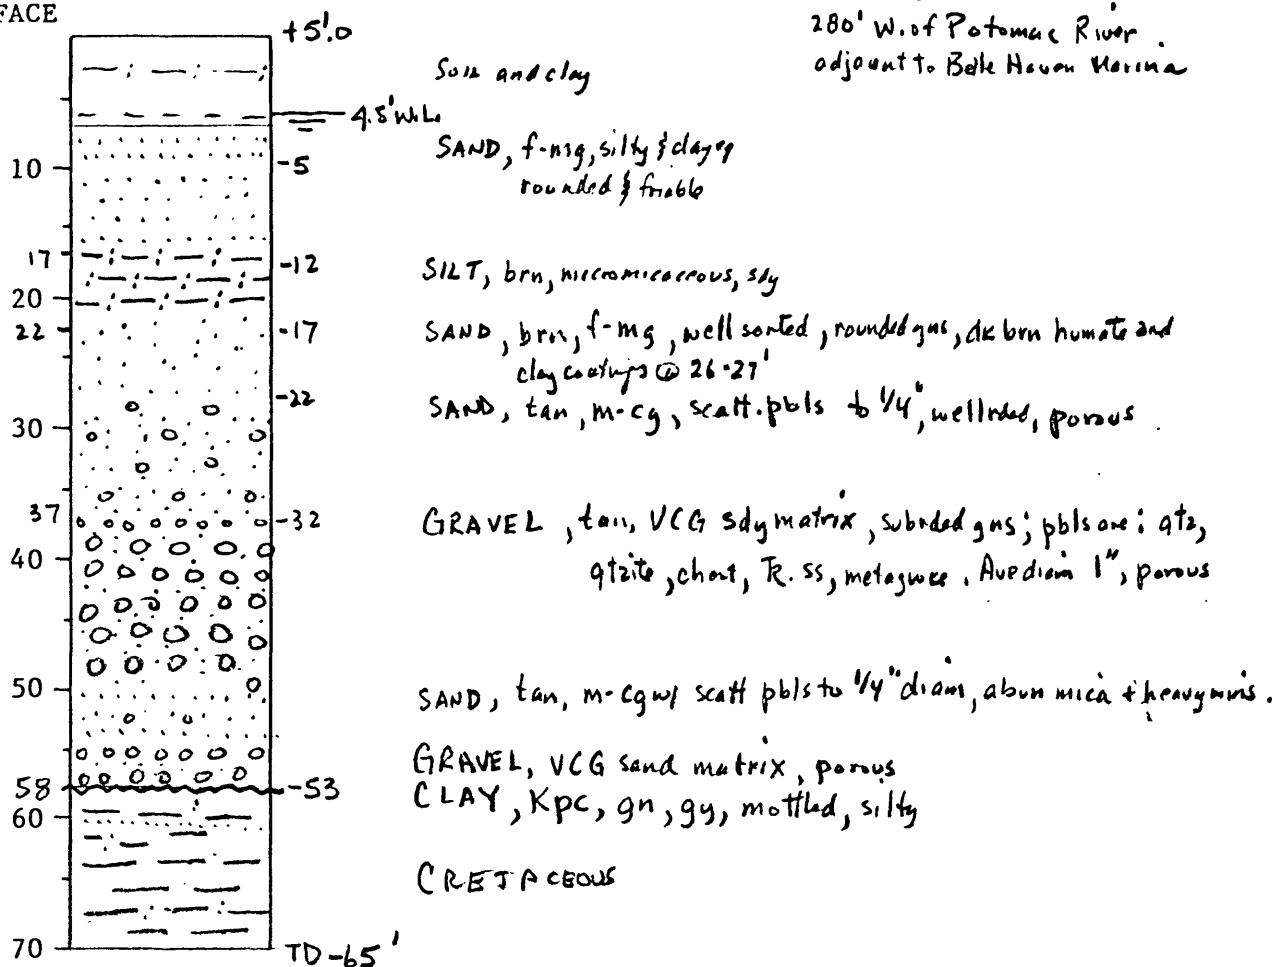 FACE
+5'.0
280' W. of Potomac River
adjacent to Belle Haven Marina
Soil and clay
4.5' W.L.
SAND, f-mg, silty & clayey
10
-5
rounded & friable
17
-12
SILT, brn, micromicaceous, sdy
20
22
-17
SAND, brn, f-mg, well sorted, rounded gns, dk brn humate and
clay coatings @ 26-27'
-22
SAND, tan, m-cg, scatt. pbls to 1/4", well rded, porous
30
37
-32
GRAVEL, tan, VCG sdy matrix, subrded gns; pbls are: qtz,
40
qtzite, chert, TR. ss, metagwce. Ave diam 1", porous
50
SAND, tan, m-cg w/ scatt pbls to 1/4" diam, abun mica + heavy mins.
GRAVEL, VCG sand matrix, porous
58
-53
CLAY, Kpc, gn, gy, mottled, silty
60
CRETACEOUS
70
TD -65'